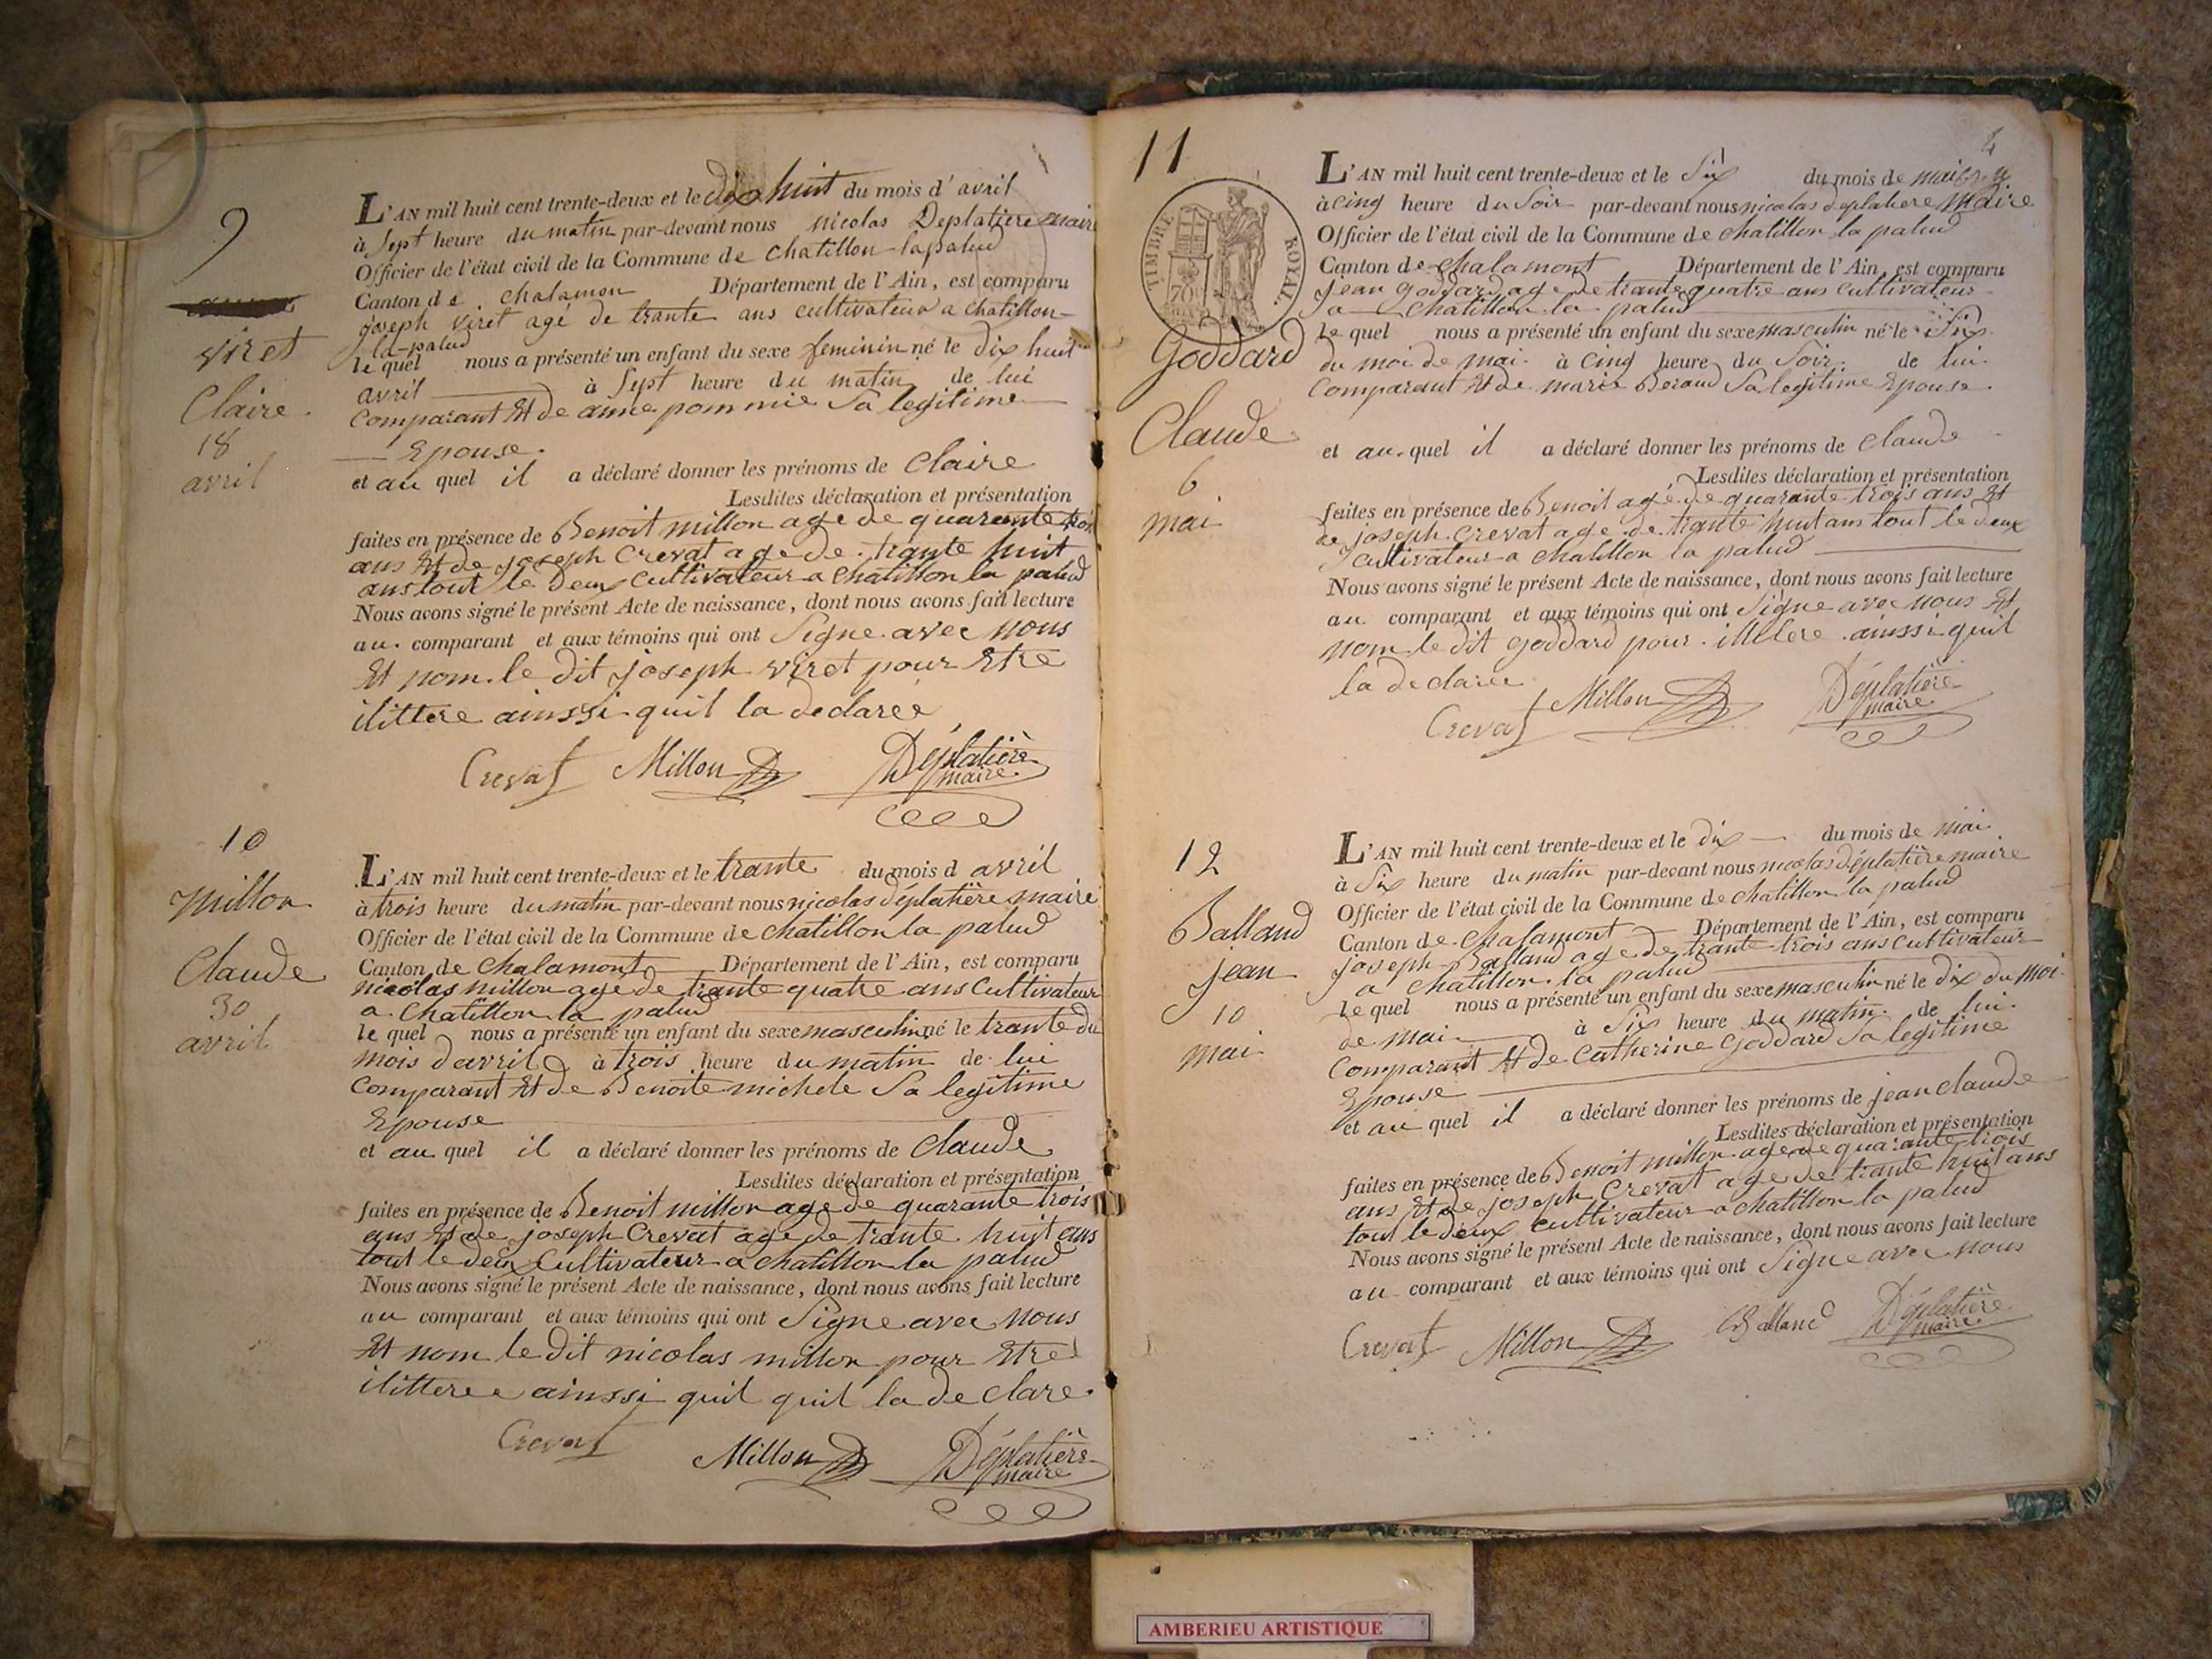 9
viret
Claire.
18
avril
L'AN mil huit cent trente-deux et le dix huit du mois d'avril
à sept heure du matin par-devant nous nicolas Deplatiere maire
Officier de l'état civil de la Commune de chatillon-lapalud
Canton de chalamon Département de l'Ain, est comparu
joseph viret agé de trante ans cultivateur a chatillon-
la-palud
le quel nous a présenté un enfant du sexe feminin né le dix huit
avril à sept heure du matin de lui
comparant Et de anne pommie sa legitime
Epouse.
et au quel il a déclaré donner les prénoms de Claire
Lesdites déclaration et présentation
faites en présence de Benoit millon age de quarante trois
ans Et de joseph Crevat age de trante huit
ans tout le deux cultivateur a chatillon la palud
Nous avons signé le présent Acte de naissance, dont nous avons fait lecture
au comparant et aux témoins qui ont Signe avec nous
Et nom le dit joseph viret pour Etre
ilittere ainssi quil la declarée
Crevat Millon Déplatière
maire
10
millon
Claude
30
avril
L'AN mil huit cent trente-deux et le trante du mois d avril
à trois heure du matin par-devant nous nicolas déplatière maire
Officier de l'état civil de la Commune de chatillon la palud
Canton de chalamont Département de l'Ain, est comparu
nicolas millon age de trante quatre ans cultivateur
a chatillon la palud
le quel nous a présenté un enfant du sexe masculin né le trante du
mois d'avril à trois heure du matin de lui
comparant Et de Benoite michele sa legitime
Epouse
et au quel il a déclaré donner les prénoms de Claude
Lesdites déclaration et présentation
faites en présence de Benoit millon age de quarante trois
ans Et de joseph Crevat age de trante huit ans
tout le deux cultivateur a chatillon la palud
Nous avons signé le présent Acte de naissance, dont nous avons fait lecture
au comparant et aux témoins qui ont Signe avec nous
Et nom le dit nicolas millon pour Etre
ilittere ainssi quil quil la de clare.
Crevat Millon Déplatière
maire
4
11
TIMBRE ROYAL.
70
Goddard
Claude
6
mai
L'AN mil huit cent trente-deux et le Six du mois de mai
à cinq heure du Soir par-devant nous nicolas deplatiere maire
Officier de l'état civil de la Commune de chatillon la palud
Canton de chalamont Département de l'Ain, est comparu
jean goddard age de trante quatre ans cultivateur
a chatillon la palud
le quel nous a présenté un enfant du sexe masculin né le Six
du moi de mai à cinq heure du Soir de lui
comparant Et de marie Beraud sa legitime Epouse.
et au quel il a déclaré donner les prénoms de claude
Lesdites déclaration et présentation
faites en présence de Benoit agé de quarante trois ans Et
de joseph Crevat age de trante huit ans tout le deux
cultivateur a chatillon la palud
Nous avons signé le présent Acte de naissance, dont nous avons fait lecture
au comparant et aux témoins qui ont Signe avec nous Et
nom le dit goddard pour ainssi quil
la declaree
Crevat Millon Déplatière
maire
12
Balland
jean
10
mai
L'AN mil huit cent trente-deux et le dix du mois de mai
à Six heure du matin par-devant nous nicolas déplatière maire
Officier de l'état civil de la Commune de chatillon la palud
Canton de chalamont Département de l'Ain, est comparu
joseph Balland age de trante trois ans cultivateur
a chatillon la palud
le quel nous a présenté un enfant du sexe masculin né le dix du moi
de mai à Six heure du matin de lui
comparant Et de catherine Goddard sa legitime
Epouse
et au quel il a déclaré donner les prénoms de jean claude
Lesdites déclaration et présentation
faites en présence de Benoit millon age de quarante trois
ans Et de joseph Crevat age de trante huit ans
tout le deux cultivateur a chatillon la palud
Nous avons signé le présent Acte de naissance, dont nous avons fait lecture
au comparant et aux témoins qui ont Signe avec nous
Crevat Millon Balland Déplatière
maire
AMBERIEU ARTISTIQUE